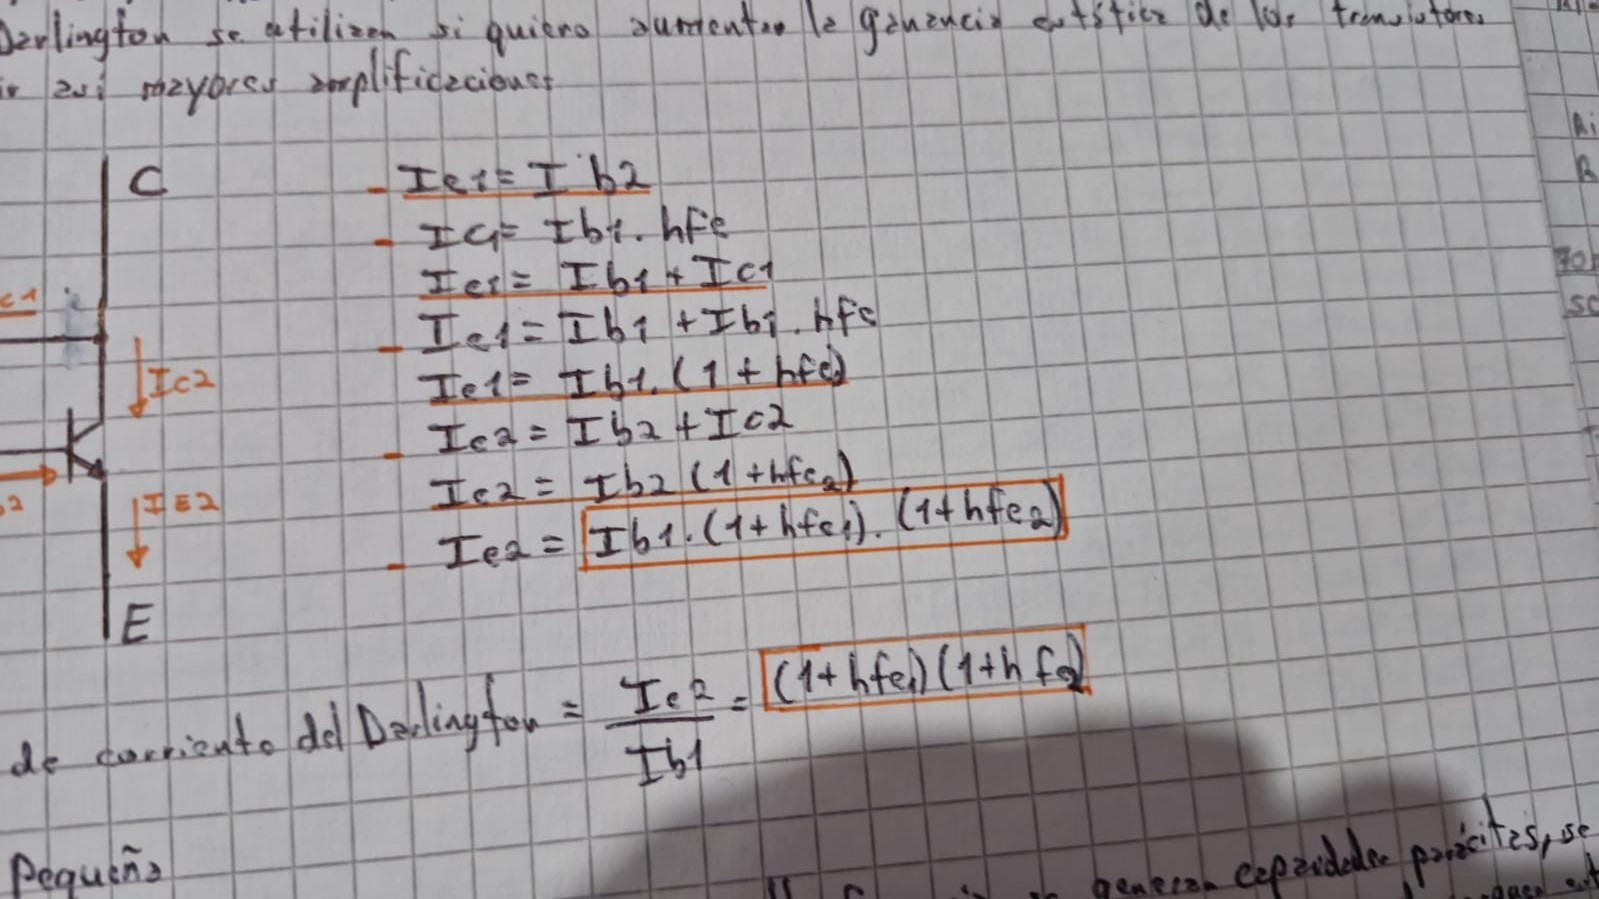 Darlington se utilizan si quiero aumentar la ganancia estática de los transistores
ir así mayores amplificaciones
C
Ie1 = Ib2
Ic1 = Ib1 . hfe
Ie1 = Ib1 + Ic1
c1
Ie1 = Ib1 + Ib1 . hfe
Ic2
Ie1 = Ib1 . (1 + hfe)
Ie2 = Ib2 + Ic2
Ie2 = Ib2 (1 + hfe2)
IE2
Ie2 = Ib1 . (1 + hfe1) . (1 + hfe2)
E
de corriente del Darlington = Ie2 / Ib1 = (1 + hfe1) (1 + hfe2)
Pequeña
generan capacidades parásitas, se